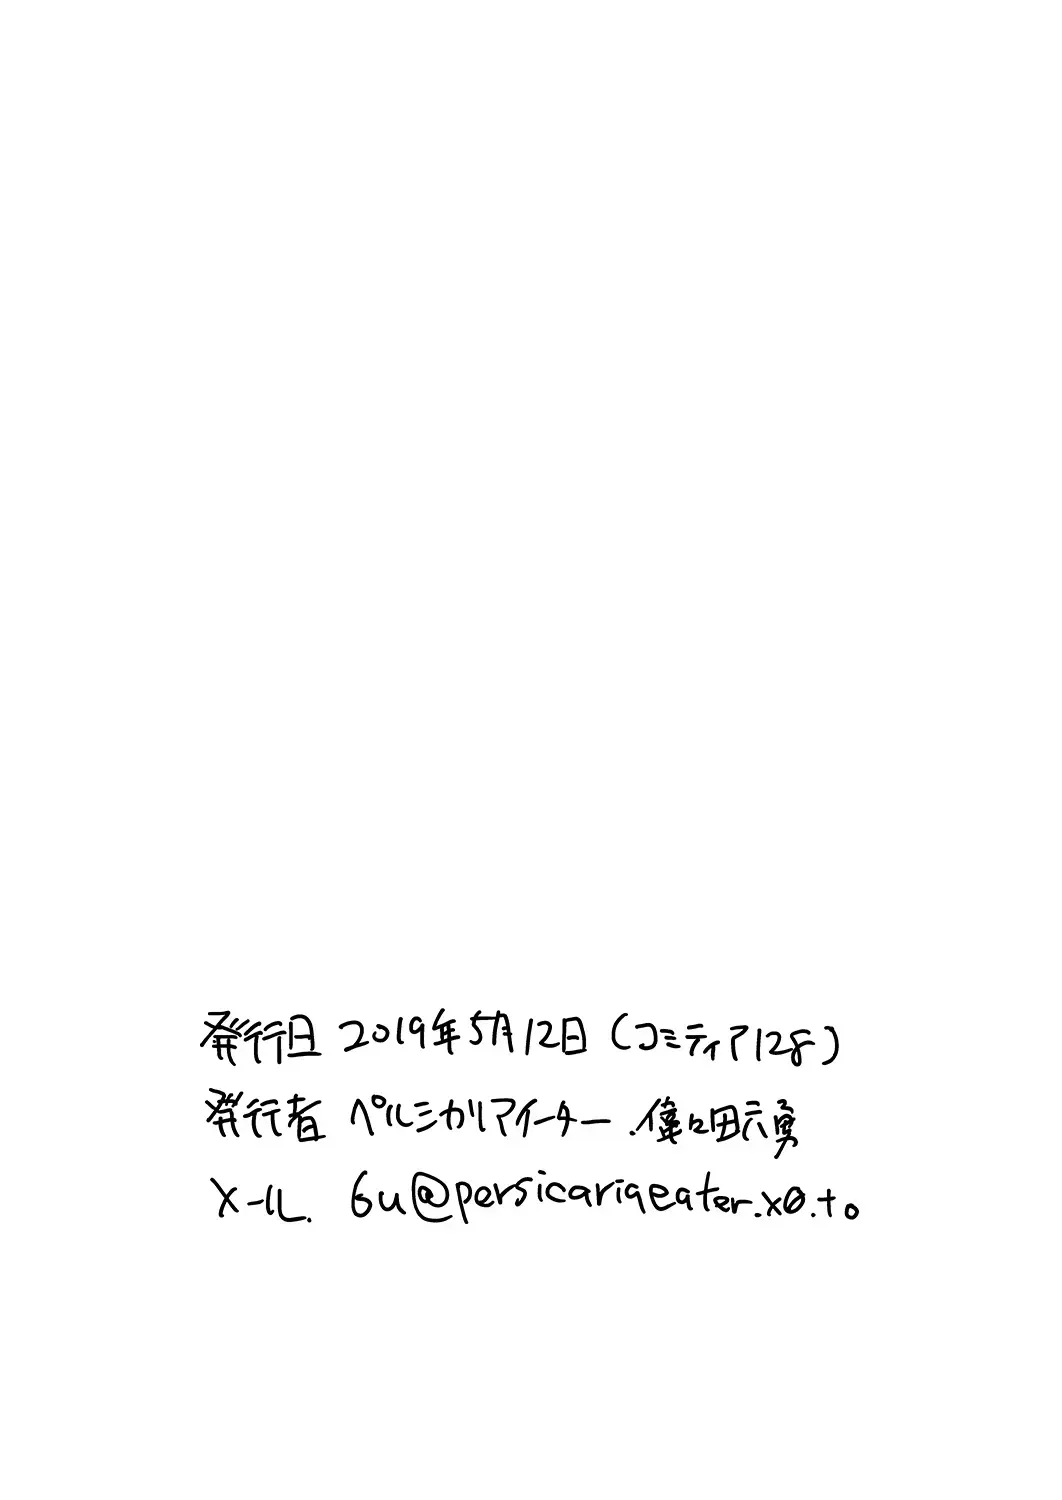 発行日 2019年5月12日 (コミティア128)
発行者 ペルシカリアイーター .偉々田六勇
メール. 6u@persicariaeater.x0.to